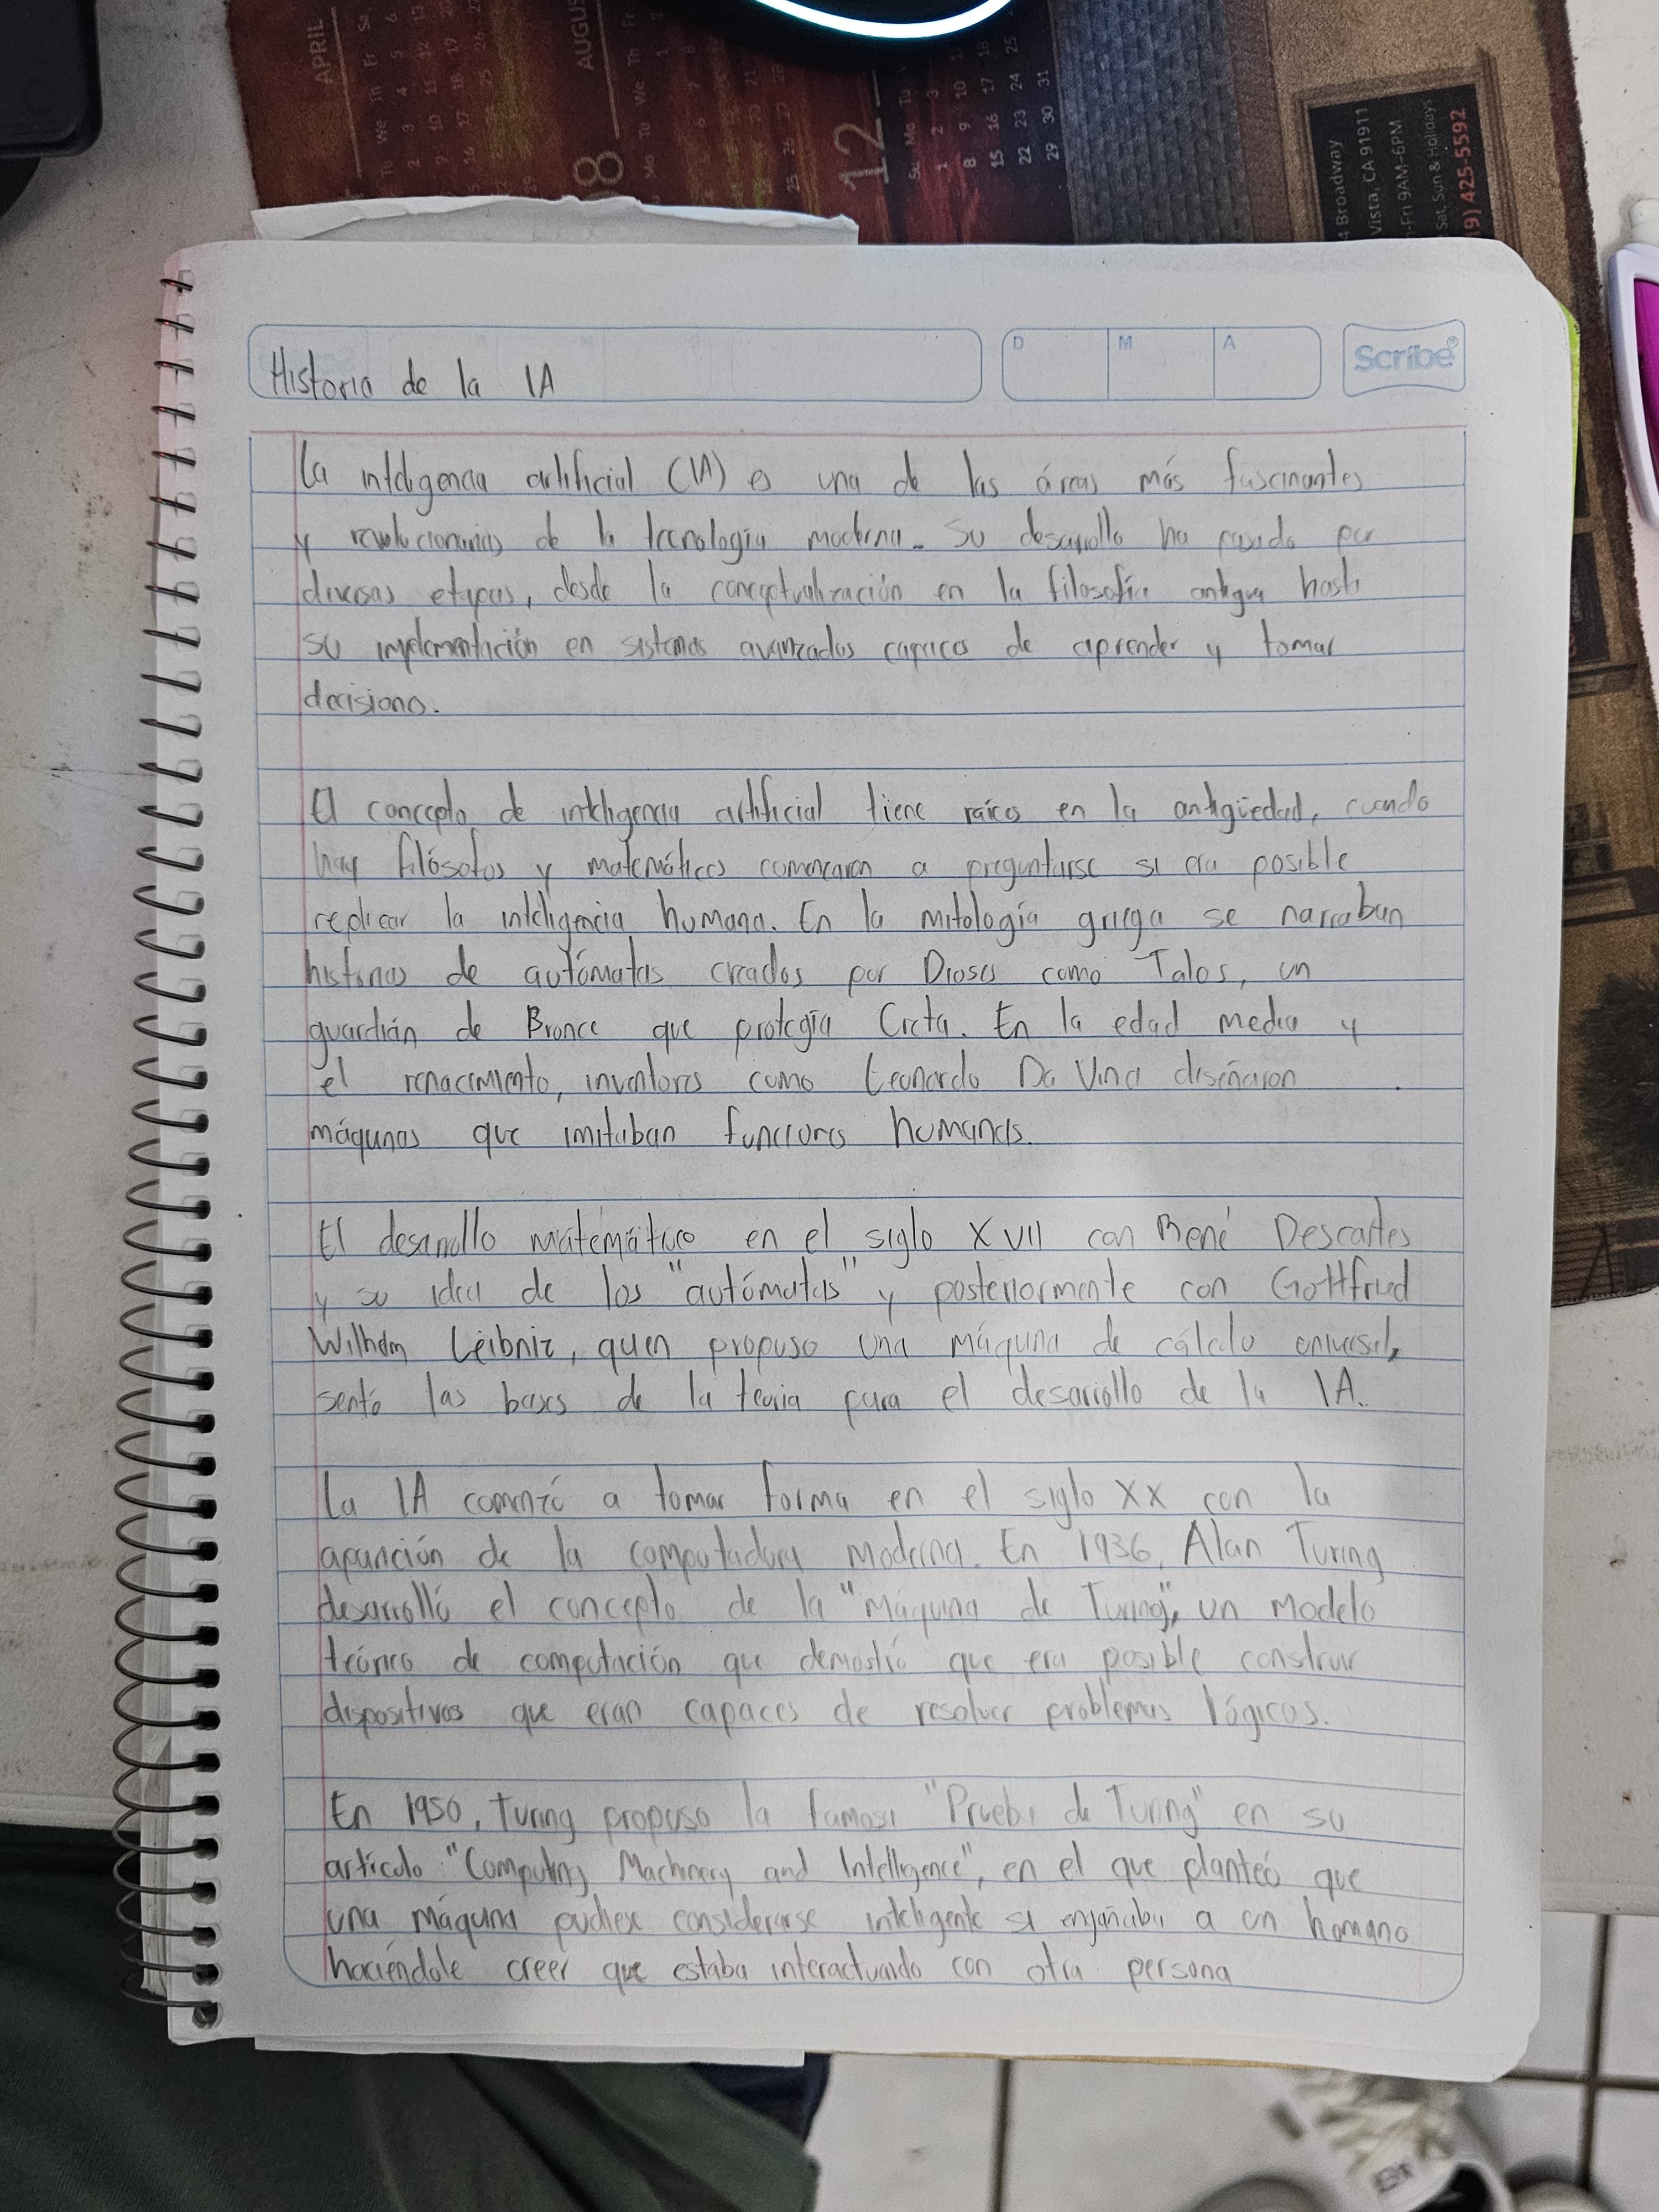 APRIL
Tu We Th Fr Sa
08
AUGUS
Mo Tu We Th Fr
12
Su Mo Tu
1 2 3
8 9 10
15 16 17 18
22 23 24 25
29 30 31
4 Broadway
Vista, CA 91911
n-Fri 9AM-6PM
Sat, Sun & Holidays
19) 425-5592
Historia de la IA
D M A
Scribe®
La inteligencia artificial (IA) es una de las áreas más fascinantes
y revolucionarias de la tecnología moderna. Su desarrollo ha pasado por
diversas etapas, desde la conceptualización en la filosofía antigua hasta
su implementación en sistemas avanzados capaces de aprender y tomar
decisiones.
El concepto de inteligencia artificial tiene raíces en la antigüedad, cuando
hay filósofos y matemáticos comenzaron a preguntarse si era posible
replicar la inteligencia humana. En la mitología griega se narraban
historias de autómatas creados por Dioses como Talos, un
guardián de Bronce que protegía Creta. En la edad media y
el renacimiento, inventores como Leonardo Da Vinci diseñaron
máquinas que imitaban funciones humanas.
El desarrollo matemático en el siglo XVII con René Descartes
y su idea de los "autómatas" y posteriormente con Gottfried
Wilhelm Leibniz, quien propuso una máquina de cálculo universal,
sentó las bases de la teoría para el desarrollo de la IA.
La IA comenzó a tomar forma en el siglo XX con la
aparición de la computadora moderna. En 1936, Alan Turing
desarrolló el concepto de la "máquina de Turing", un modelo
teórico de computación que demostró que era posible construir
dispositivos que eran capaces de resolver problemas lógicos.
En 1950, Turing propuso la famosa "Prueba de Turing" en su
artículo "Computing Machinery and Intelligence", en el que planteó que
una máquina pudiese considerarse inteligente si engañaba a un humano
haciéndole creer que estaba interactuando con otra persona